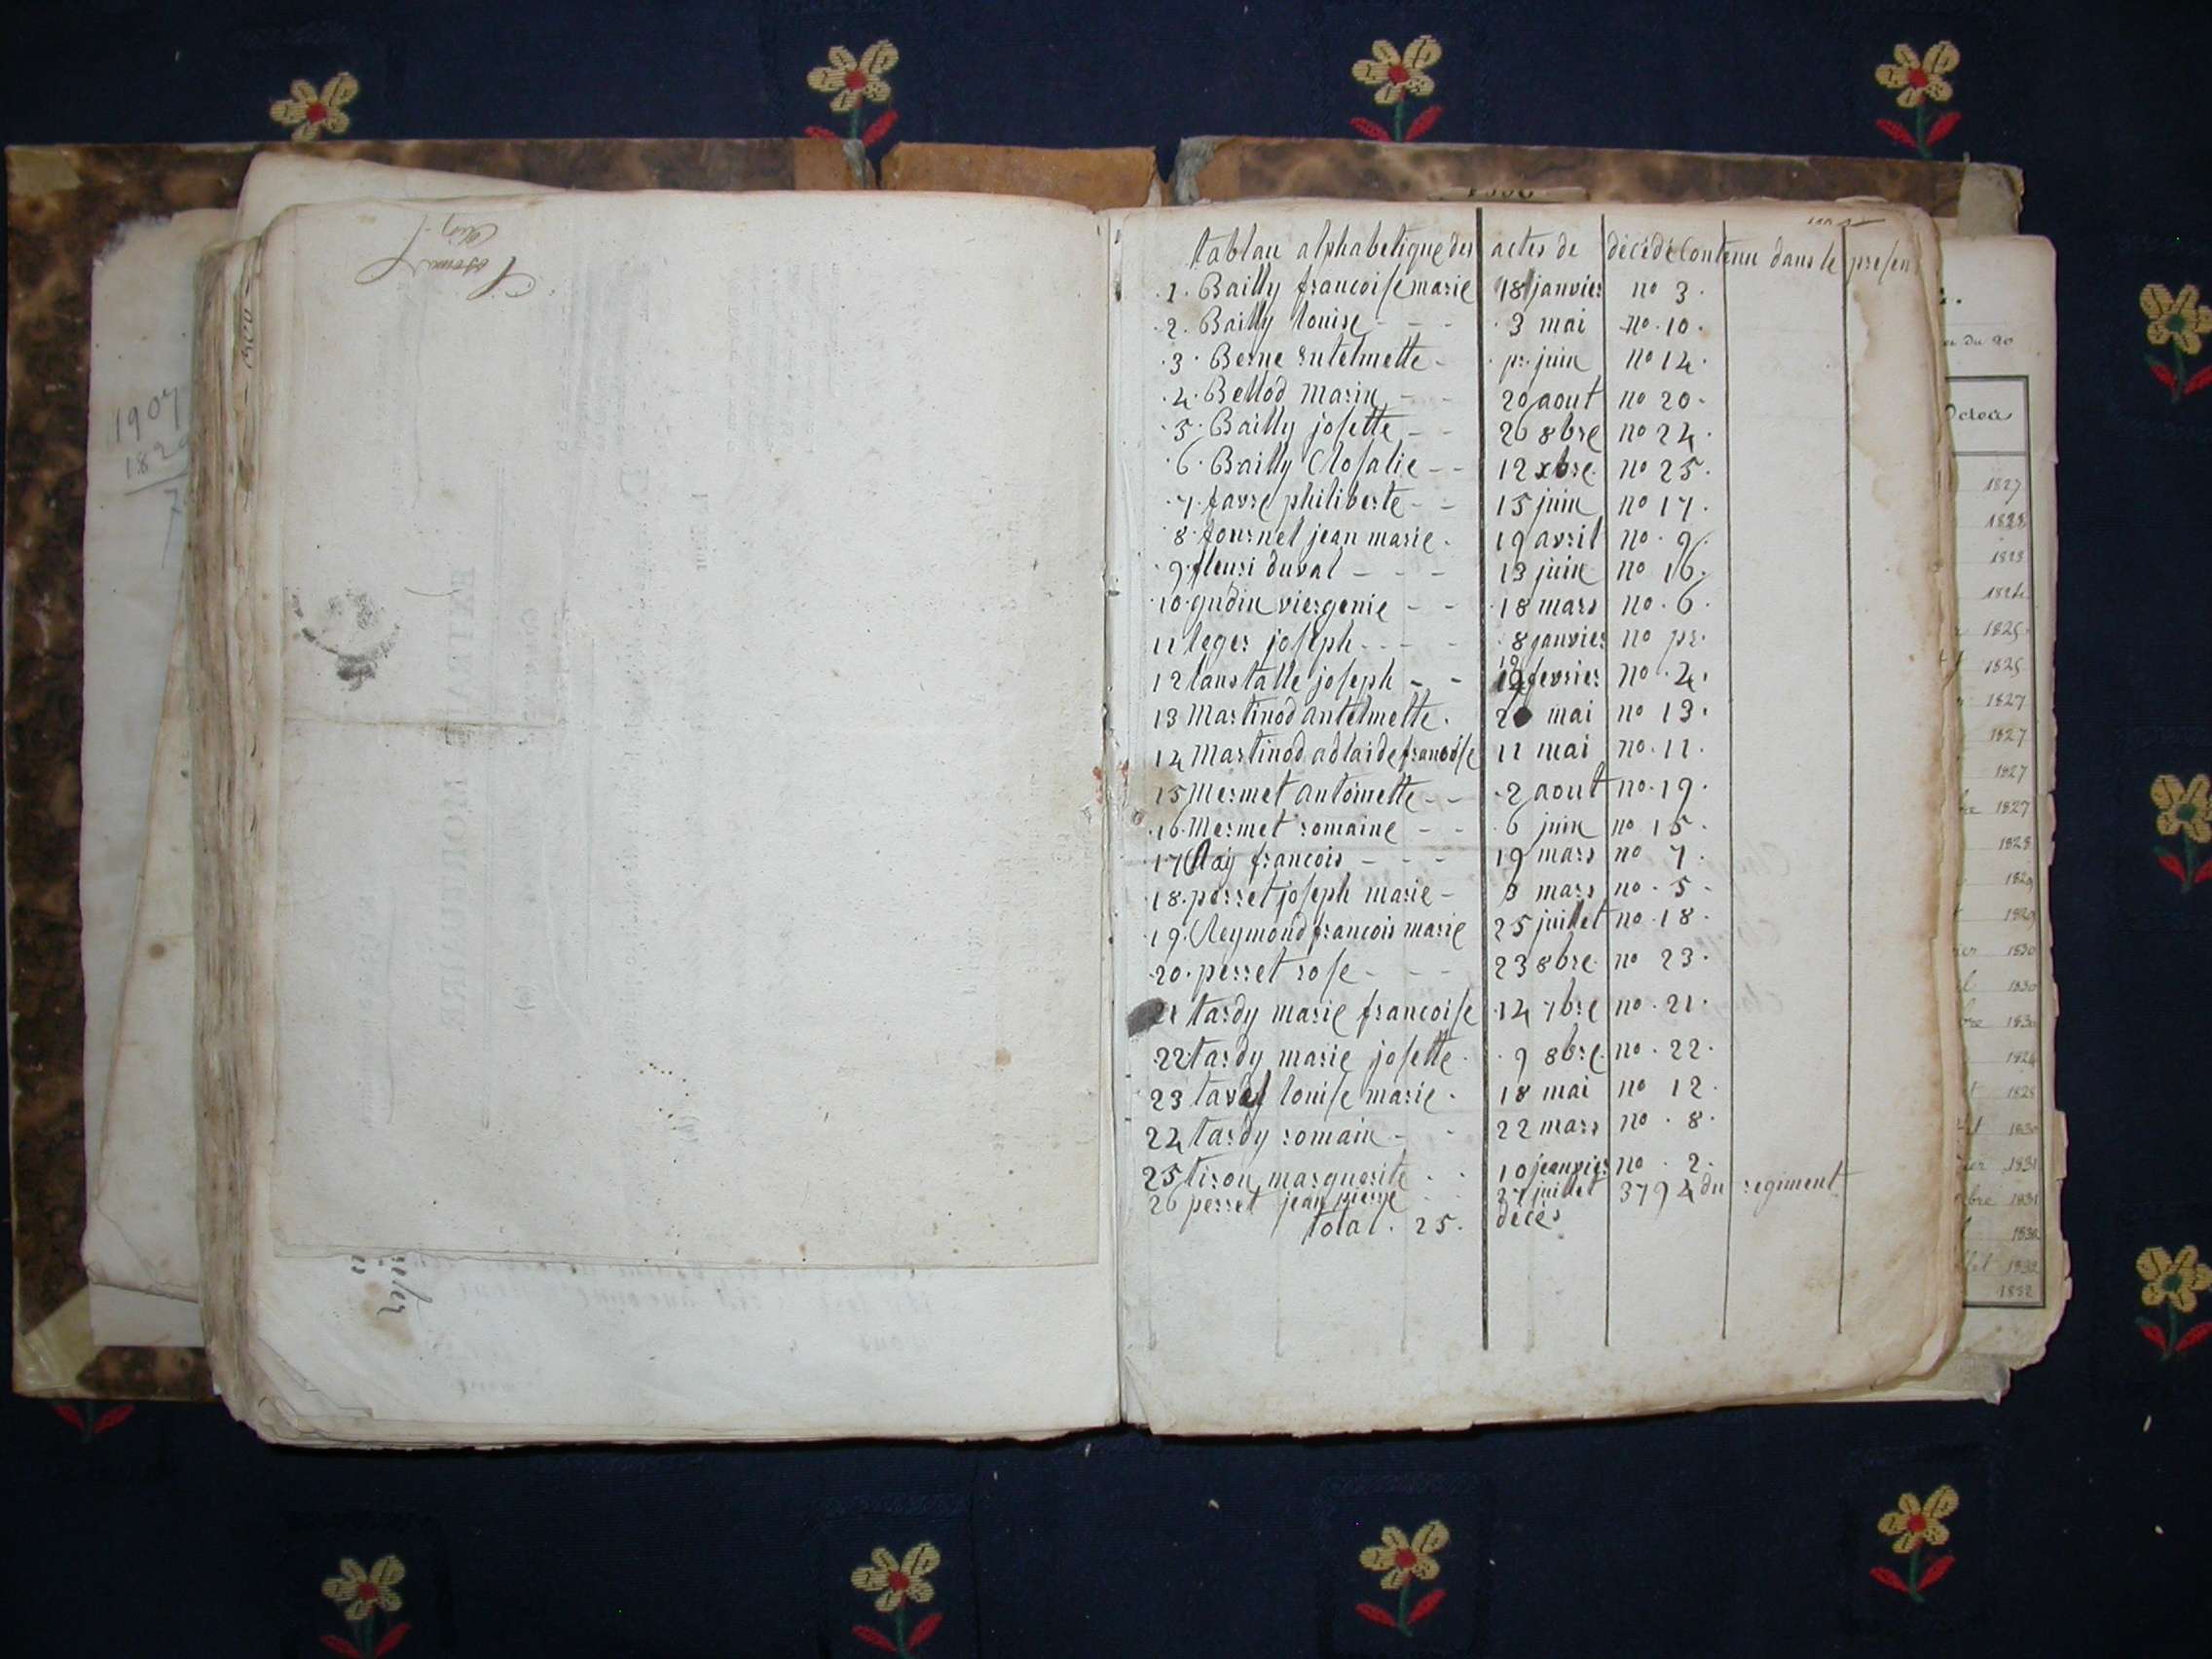 1907
182
tablau alphabetique des actes de décédé Contenu dans le presen
1. Bailly francoise marie 18 janvier no 3.
2. Bailly louise - - - 3 mai no. 10.
3. Berne Entelmette - pr. juin no 14.
4. Bellod Marin - - 20 aout no 20.
5. Bailly josette - - 26 8bre no 24.
6. Bailly Rosalie - - 12 xbre. no 25.
7. favre philiberte - - 15 juin no 17.
8. fournel jean marie. 19 avril no. 9.
9. fleuri duval - - - 13 juin no 16.
10. gudin viergenie - - 18 mars no. 6.
11 leger joseph - - - - 8 janvier no pr.
12 lanstalle joseph - - 19 fevrier no. 4.
13 Martinod antelmette. 2 mai no 13.
14 Martinod adlaide francoise 11 mai no. 11.
15 Mermet antoinette - - 2 aout no. 19.
16. Mermet romaine - - 6 juin no 15.
17 Ray francois - - - 19 mars no 7.
18. perret joseph marie - 3 mars no. 5.
19. Reymond francois marie 25 juillet no. 18.
20. perret rose - - - 23 8bre. no 23.
21 tardy marie francoise 14 7bre no. 21.
22 tardy marie josette. 9 8bre. no. 22.
23 tavel louise marie. 18 mai no 12.
24 tardy romain - - 22 mars no. 8.
25 tiron marguerite . . 10 jeanvier no. 2.
26 perret jean pierre . . 27 juillet 3794 du regiment
total. 25. décès
er du 20
1827
1828
1823
1824
1825
1825
1827
1827
1827
bre 1827
1828
1829
1829
1830
1830
bre 1830
1824
1828
1830
1831
bre 1831
1832
llet 1832
1832